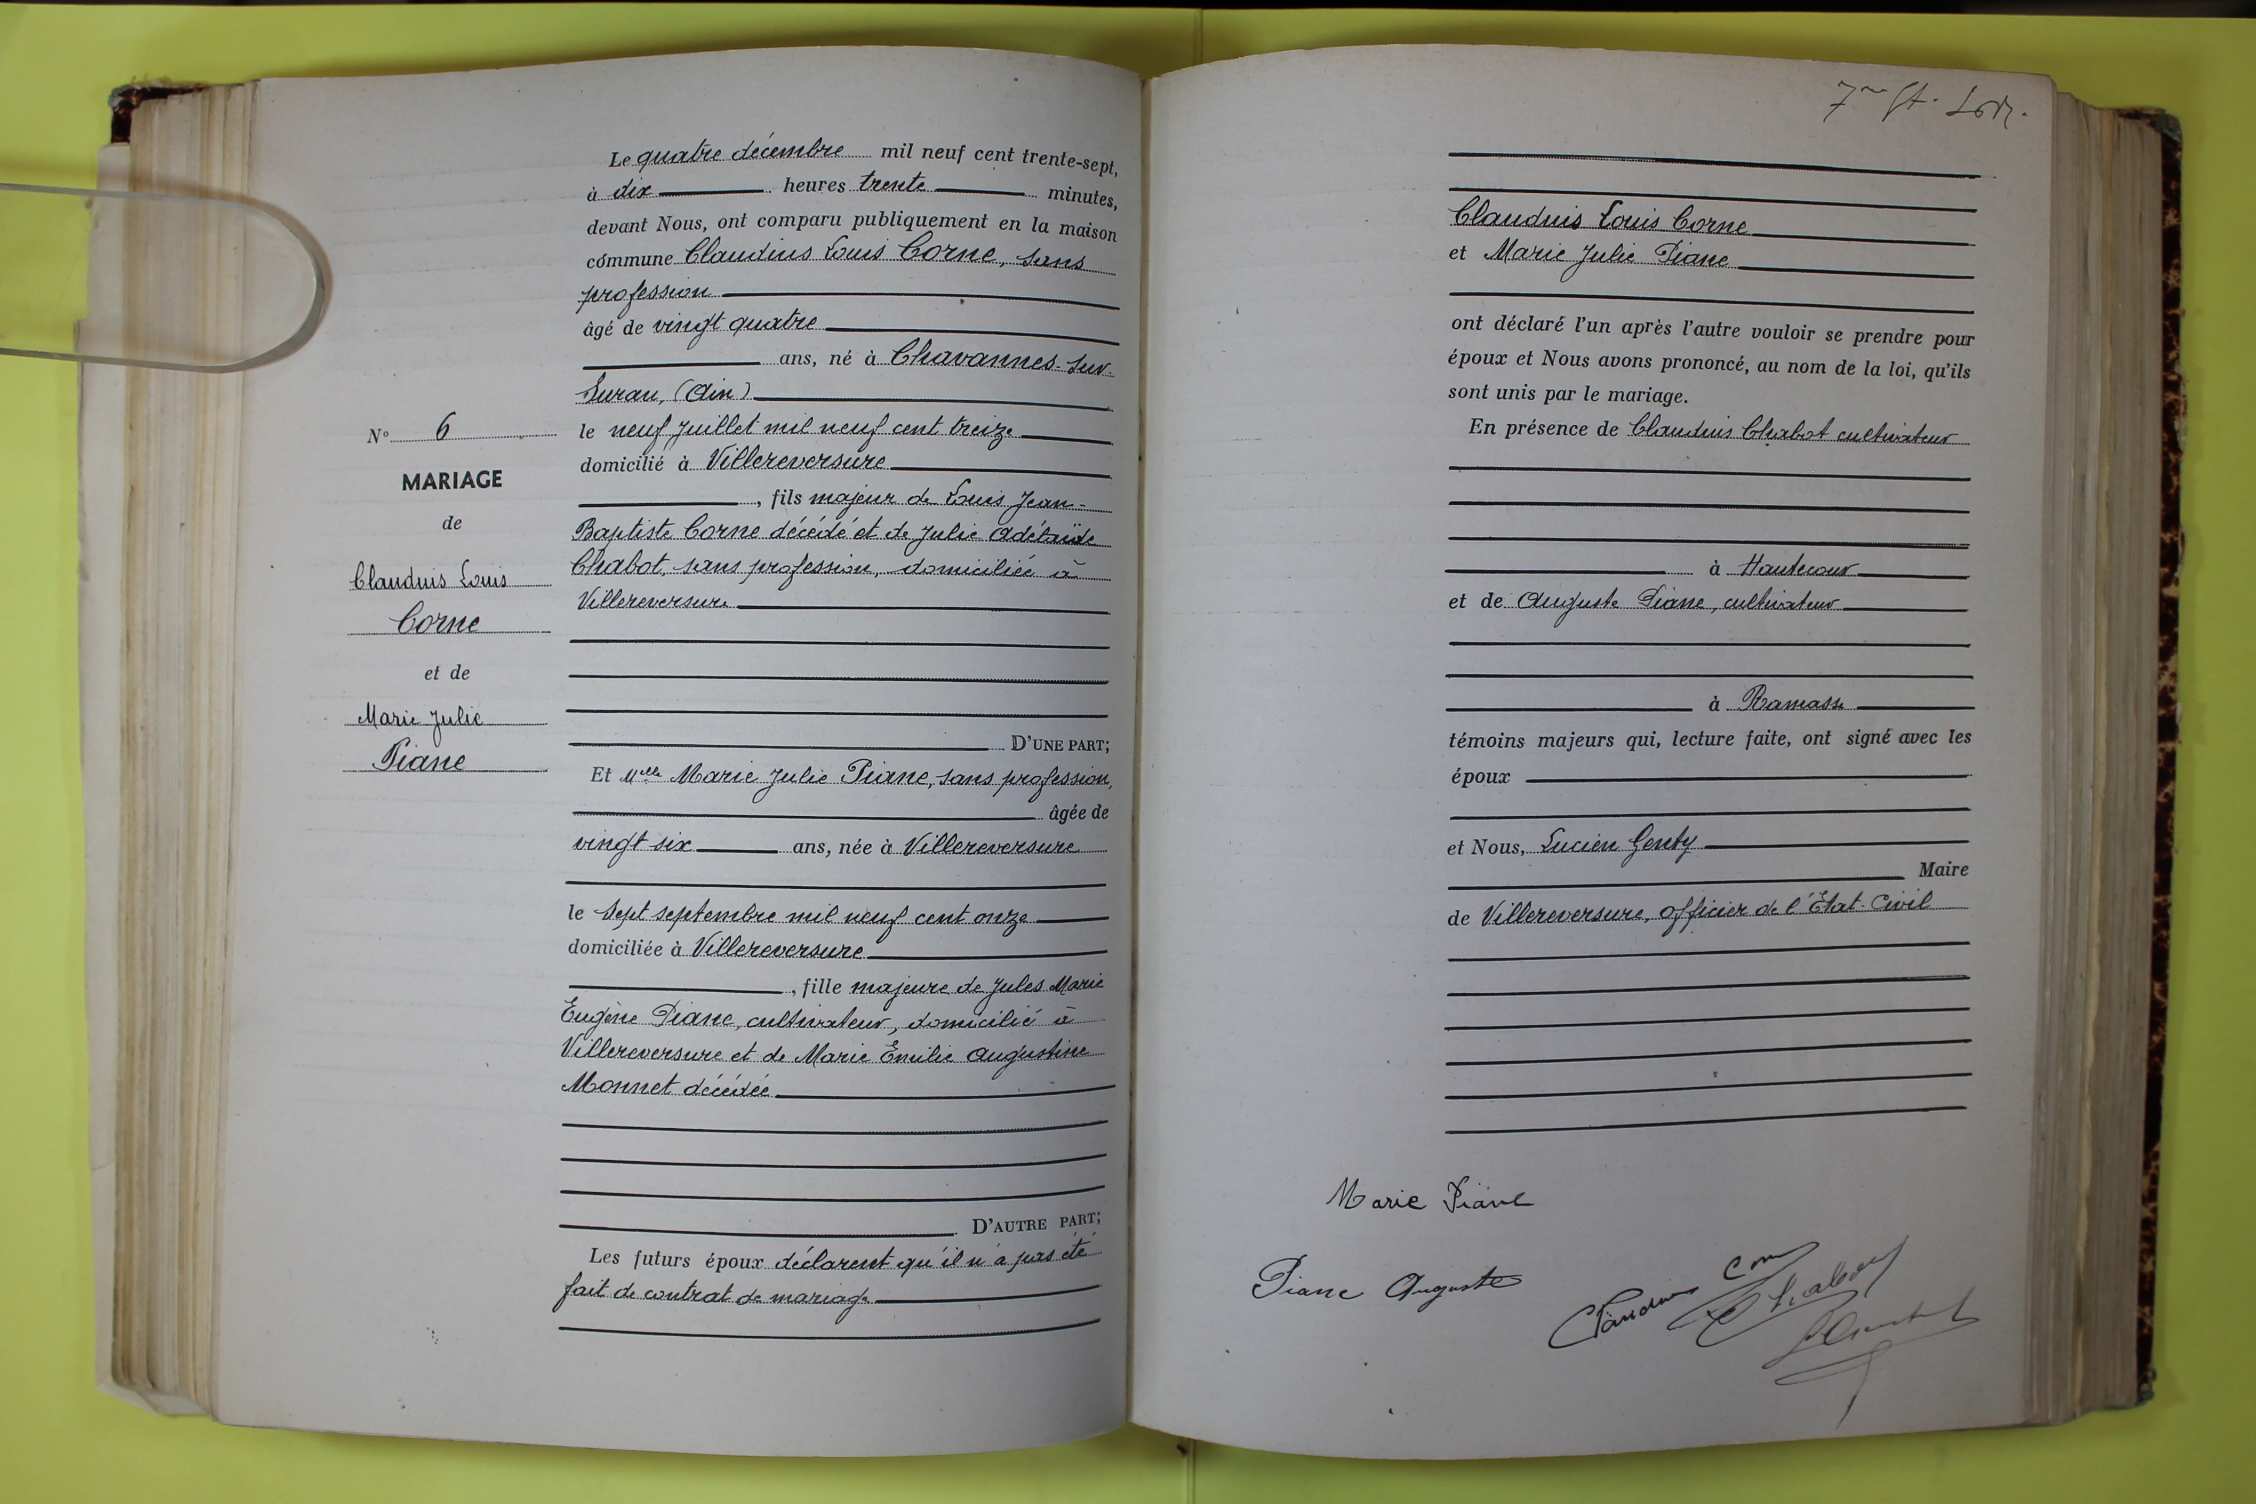 Le quatre décembre mil neuf cent trente-sept,
à dix heures trente minutes,
devant Nous, ont comparu publiquement en la maison
commune Claudius Louis Corne, sans
profession
âgé de vingt quatre
ans, né à Chavannes-sur-
Suran, (Ain)
le neuf Juillet mil neuf cent treize
domicilié à Villereversure
, fils majeur de Louis Jean-
Baptiste Corne décédé et de Julie Adélaïde
Chabot, sans profession, domiciliée à
Villereversure
D'UNE PART;
Et Melle Marie Julie Piane, sans profession,
âgée de
vingt six ans, née à Villereversure
le sept septembre mil neuf cent onze
domiciliée à Villereversure
, fille majeure de Jules Marie
Eugène Piane, cultivateur, domicilié à
Villereversure et de Marie Emilie Augustine
Monnet décédée
D'AUTRE PART;
Les futurs époux déclarent qu'il n'a pas été
fait de contrat de mariage
No 6
MARIAGE
de
Claudius Louis
Corne
et de
Marie Julie
Piane
Claudius Louis Corne
et Marie Julie Piane
ont déclaré l'un après l'autre vouloir se prendre pour
époux et Nous avons prononcé, au nom de la loi, qu'ils
sont unis par le mariage.
En présence de Claudius Chabot cultivateur
à Hautecour
et de Auguste Piane, cultivateur
à Ramasse
témoins majeurs qui, lecture faite, ont signé avec les
époux
et Nous, Lucien Genty
Maire
de Villereversure, officier de l'Etat-Civil
Marie Piane
Piane Auguste
Claudius Corne
Chabot